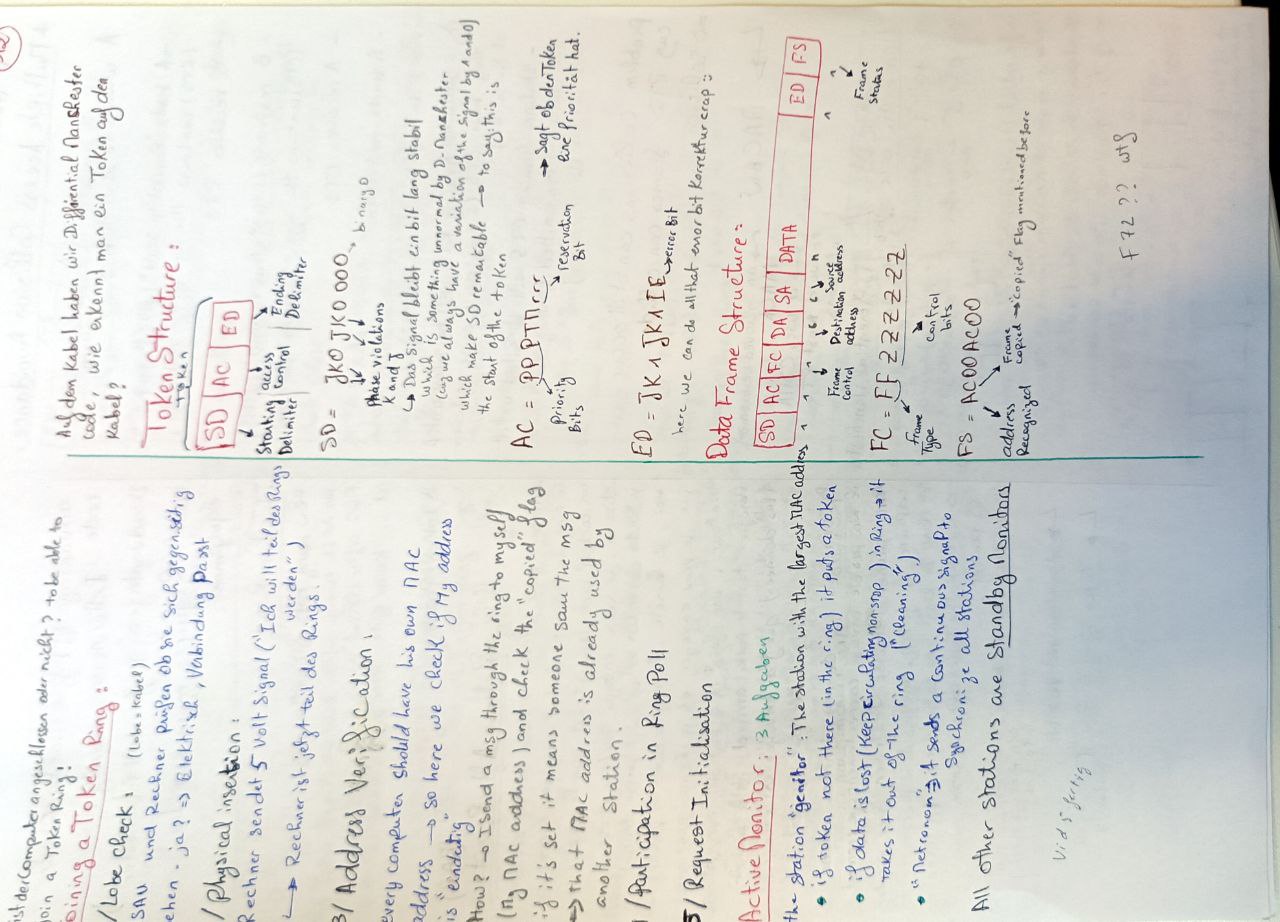 ist der Computer angeschlossen oder nicht ? to be able to
join a Token Ring!
oining a Token Ring :
/ Lobe check : (Lobe = Kabel)
SAU und Rechner prüfen ob sie sich gegenseitig
ehen - ja? => Elektrisch, Verbindung Passt
/ physical insertion :
Rechner sendet 5 Volt Signal ("Ich will teil des Rings
werden")
↳ Rechner ist jetzt teil des Rings.
3/ Address Verification :
every computer should have his own MAC
address → so here we check if My address
is "eindeutig"
How? → I send a msg through the ring to myself
(My MAC address) and check the "copied" flag
if it's set it means someone saw the msg
=> that MAC address is already used by
another station.
/ Participation in Ring Poll
5/ Request Initialisation
Active Monitor : 3 Aufgaben
the station "genitor" : The station with the largest MAC address
• if token not there (in the ring) it puts a token
• if data is lost (keep circulating non-stop) in Ring → it
takes it out of the ring ("cleaning")
• "Metronom" => it sends a continuous signal to
Sychronize all stations
All other stations are Standby Monitors
Vid 5 fertig
Auf dem Kabel haben wir Differential Manshester
code, wie erkennt man ein Token auf den
Kabel ?
Token Structure :
Token
SD AC ED
Starting Delimiter
access control
Ending Delimiter
SD = JK0 JK0 000 → binary 0
Phase violations
K and J
↳ Das Signal bleibt ein bit lang stabil
which is something unnormal by D. Manshester
(cuz we always have a variation of the signal by 1 and 0)
which make SD remarkable → to say: this is
the start of the token
AC = PPPTMrrr
Priority Bits
reservation Bit
→ Sagt ob den Token
eine Priorität hat.
ED = JK1 JK1 IE → error Bit
here we can do all that error bit Korrektur crap :
Data Frame Structure :
SD AC FC DA SA DATA ED FS
1 1 1 6 6 n 1 1
Frame control
Destination address
Source address
Frame Status
FC = FF ZZZZZZ
frame Type
control bits
FS = AC00AC00
address Recognized
Frame copied → "copied" Flag mentioned before
F 72 ?? wtf